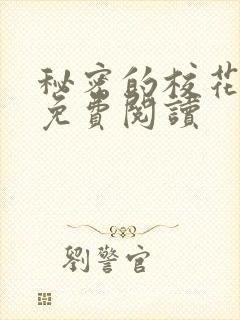 秘密的校花
免費閱讀
劉警官